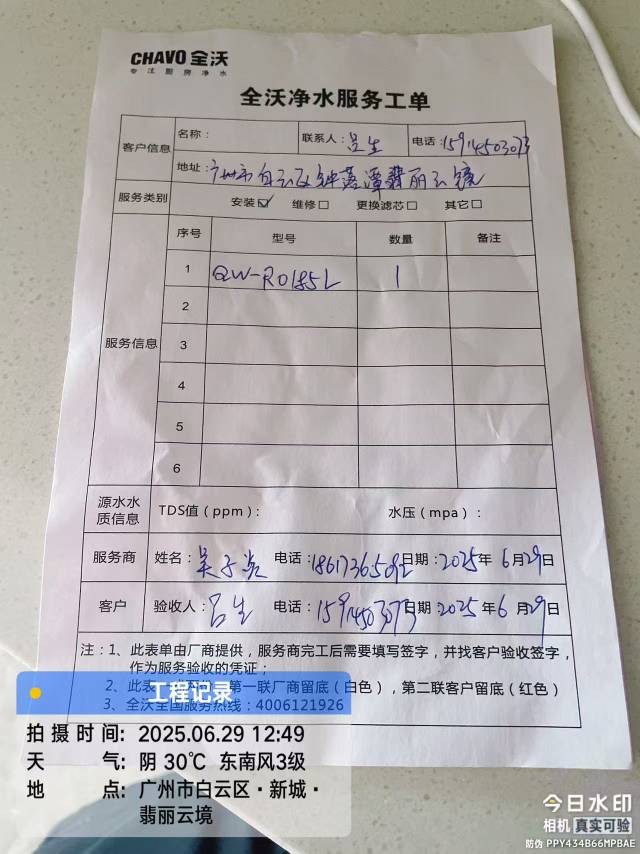 CHAVO 全沃
专注厨房净水
全沃净水服务工单
客户信息 名称： 联系人：吕生 电话：15914503073
地址：广州市白云区钟落潭翡丽云境
服务类别 安装☑ 维修□ 更换滤芯□ 其它□
服务信息 序号 型号 数量 备注
1 QW-R0185L 1
2
3
4
5
6
源水水质信息 TDS值（ppm）： 水压（mpa）：
服务商 姓名：吴子 电话：18617365092 日期：2025年6月29日
客户 验收人：吕生 电话：15914503073 日期：2025年6月29日
注：1、此表单由厂商提供，服务商完工后需要填写签字，并找客户验收签字，
作为服务验收的凭证；
2、此表 第一联厂商留底（白色），第二联客户留底（红色）
3、全沃全国服务热线：4006121926
工程记录
拍摄时间：2025.06.29 12:49
天气：阴 30℃ 东南风3级
地点：广州市白云区·新城·
翡丽云境
今日水印
相机 真实可验
防伪 PPY434B66MPBAE